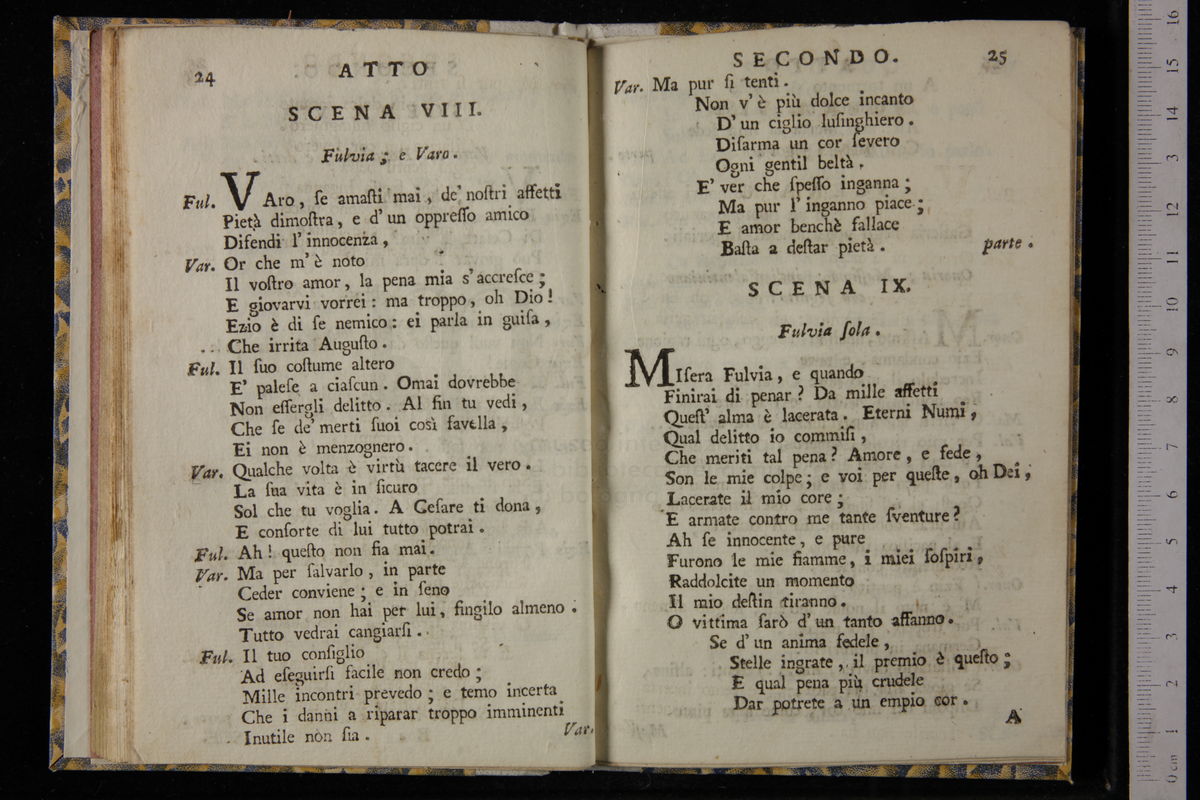 24
ATTO
SCENA VIII.
Fulvia; e Varo.
Ful. VAro, ſe amaſti mai, de' noſtri affetti
Pietà dimoſtra, e d'un oppreſſo amico
Difendi l'innocenza,
Var. Or che m'è noto
Il voſtro amor, la pena mia s'accreſce;
E giovarvi vorrei: ma troppo, oh Dio!
Ezio è di ſe nemico: ei parla in guiſa,
Che irrita Auguſto.
Ful. Il ſuo coſtume altero
E' paleſe a ciaſcun. Omai dovrebbe
Non eſſergli delitto. Al fin tu vedi,
Che ſe de' merti ſuoi così favella,
Ei non è menzognero.
Var. Qualche volta è virtù tacere il vero.
La ſua vita è in ſicuro
Sol che tu voglia. A Ceſare ti dona,
E conſorte di lui tutto potrai.
Ful. Ah! queſto non fia mai.
Var. Ma per ſalvarlo, in parte
Ceder conviene; e in ſeno
Se amor non hai per lui, fingilo almeno.
Tutto vedrai cangiarſi.
Ful. Il tuo conſiglio
Ad eſeguirſi facile non credo;
Mille incontri prevedo; e temo incerta
Che i danni a riparar troppo imminenti
Inutile non ſia.
Var.
SECONDO.
25
Var. Ma pur ſi tenti.
Non v'è più dolce incanto
D'un ciglio luſinghiero.
Diſarma un cor ſevero
Ogni gentil beltà.
E' ver che ſpeſſo inganna;
Ma pur l'inganno piace;
E amor benchè fallace
Baſta a deſtar pietà. parte.
SCENA IX.
Fulvia ſola.
MIſera Fulvia, e quando
Finirai di penar? Da mille affetti
Queſt' alma è lacerata. Eterni Numi,
Qual delitto io commiſi,
Che meriti tal pena? Amore, e fede,
Son le mie colpe; e voi per queſte, oh Dei,
Lacerate il mio core;
E armate contro me tante ſventure?
Ah ſe innocente, e pure
Furono le mie fiamme, i miei ſoſpiri,
Raddolcite un momento
Il mio deſtin tiranno.
O vittima ſarò d'un tanto affanno.
Se d'un anima fedele,
Stelle ingrate, il premio è queſto;
E qual pena più crudele
Dar potrete a un empio cor.
A
0 cm 1 2 3 4 5 6 7 8 9 10 11 12 13 14 15 16